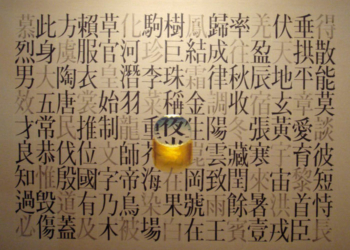 得散能莫談彼短恃
垂拱平章愛育黎首臣
伏天地玄黃宇宙洪戎
羌盈辰宿張寒來暑壹
率往秋收冬藏閏餘王
歸成律調陽雲致雨在
鳳結霜金生麗岡號
樹巨珠稱夜光果場
駒珍李重芥海染被
化河潛羽龍師帝鳥木
草官皇始制文字乃及
賴服衣裳推位國有蓋
方虞陶唐民伐殷道
此身大五常恭惟毀傷
慕烈男效才良知過必